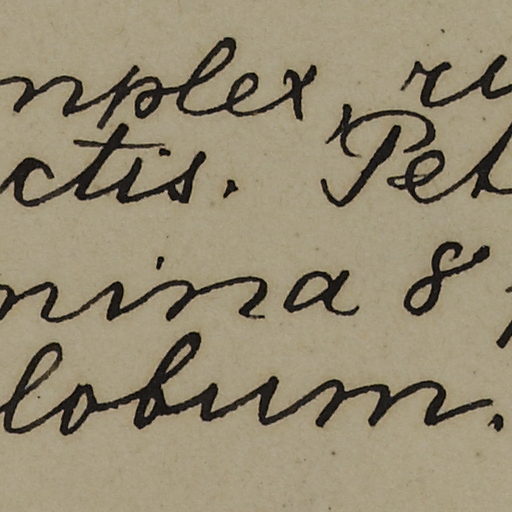 mplex, ru
ctis. Pet
mina 8 p
lobum.